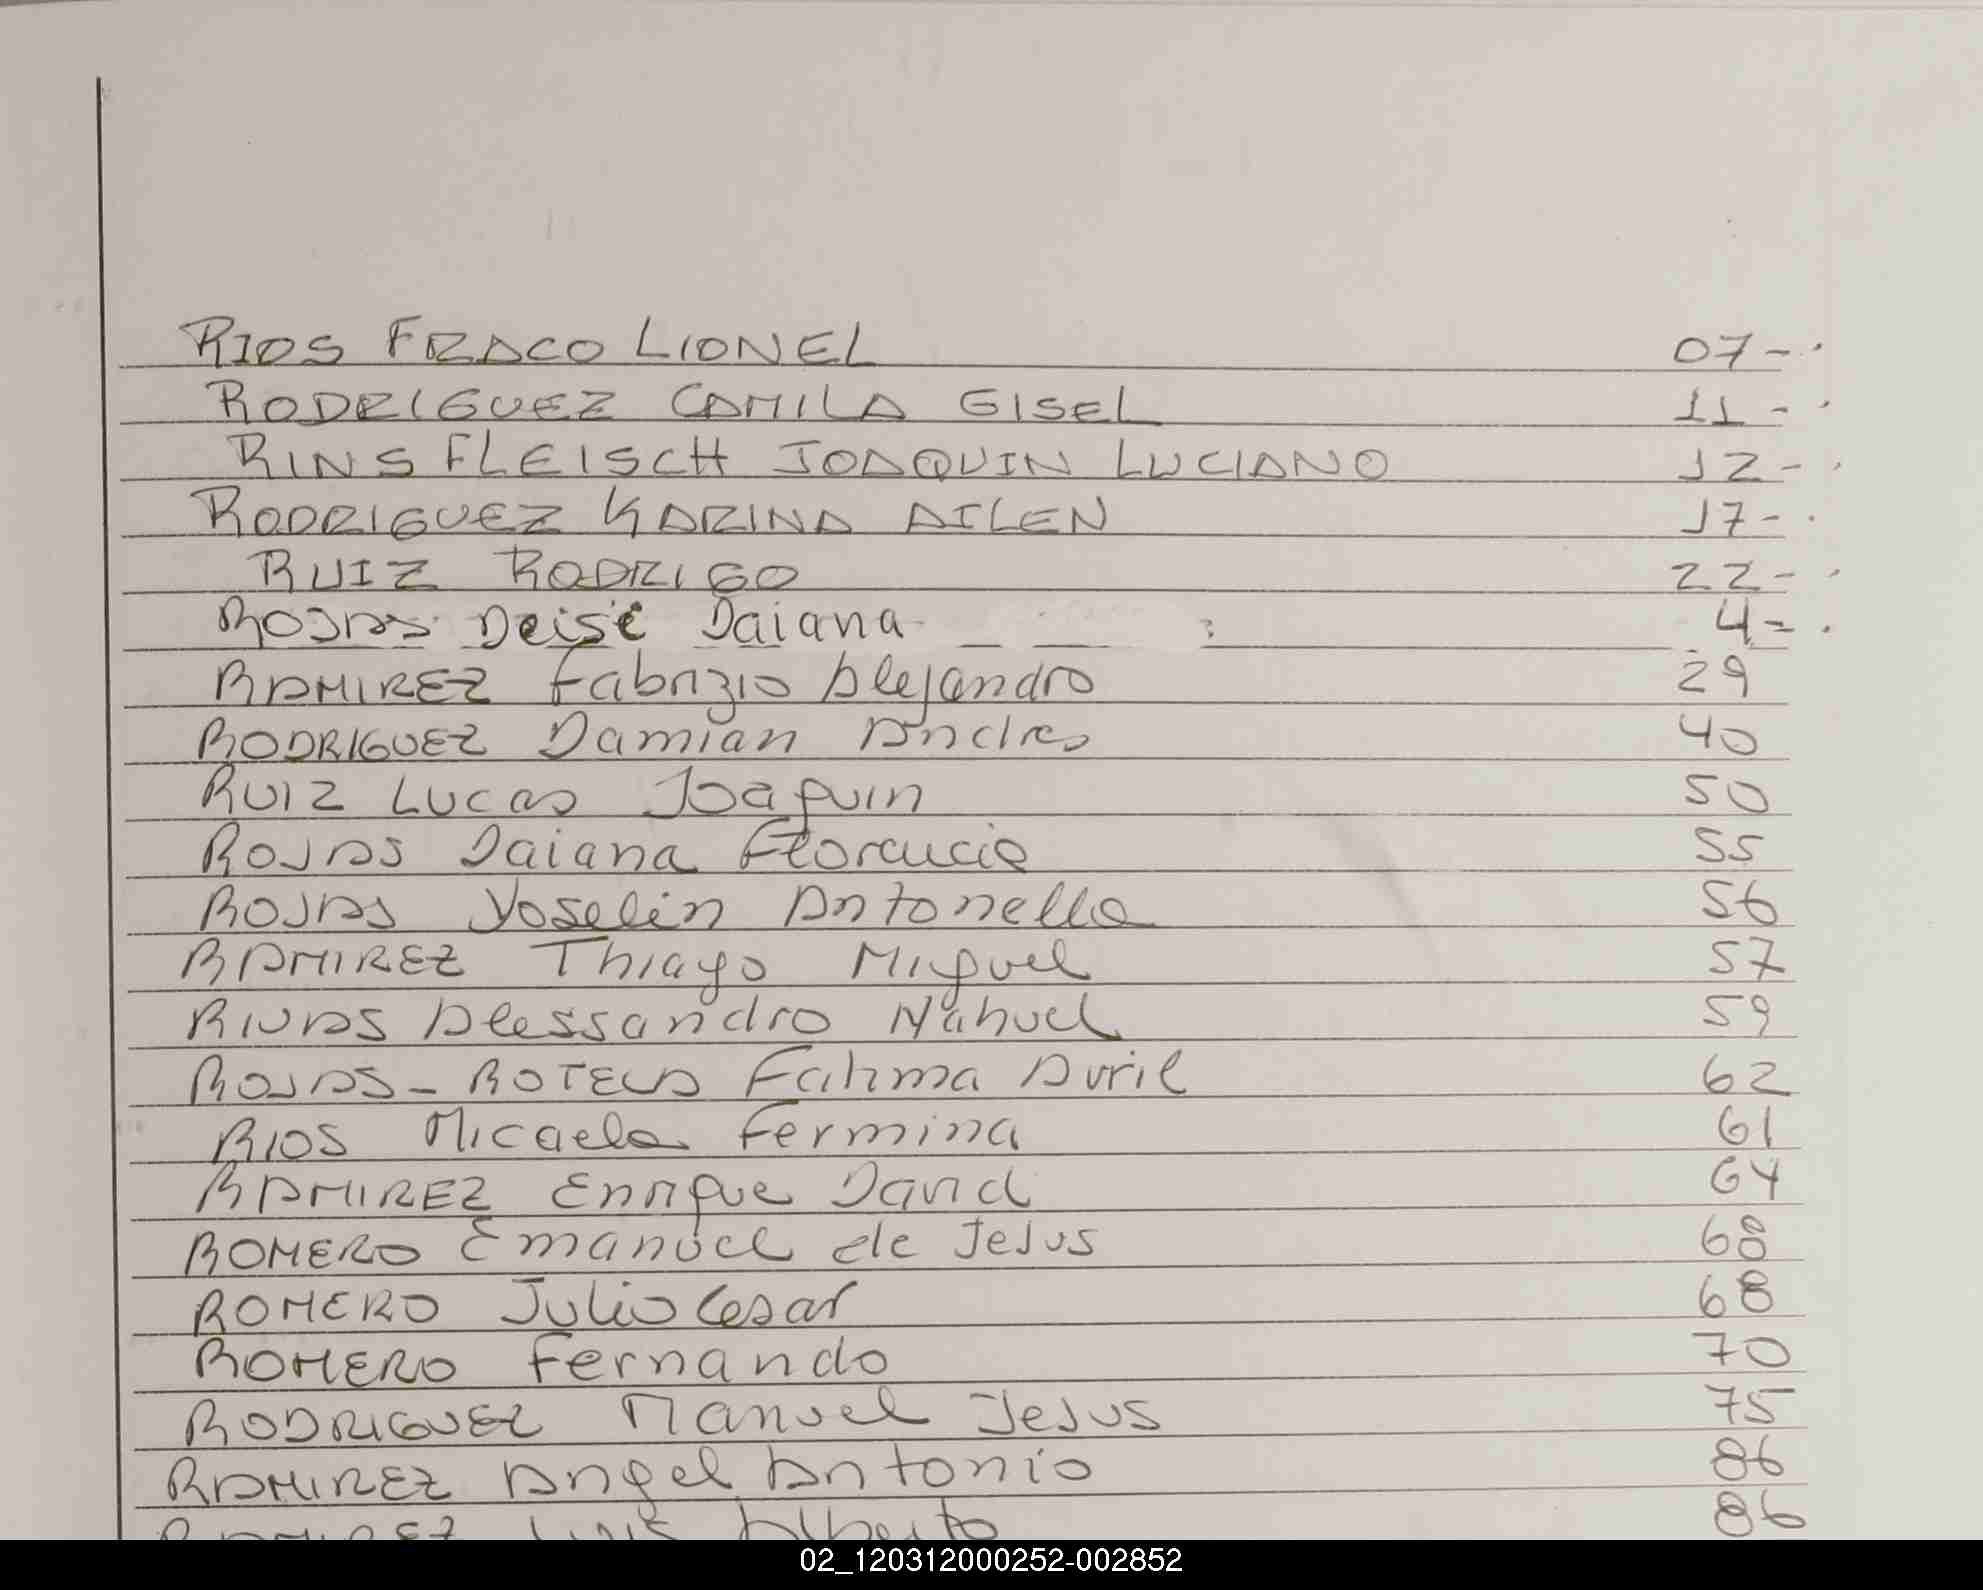 RIOS FRACO LIONEL 07-
RODRIGUEZ CAMILA GISEL 11-
RINSFLEISCH JOAQUIN LUCIANO 12-
RODRIGUEZ KARINA AILEN 17-
RUIZ RODRIGO 22-
ROJAS Deise Daiana 4-
RAMIREZ Fabrizio Alejandro 29
RODRIGUEZ Damian Andres 40
RUIZ Lucas Joaquin 50
ROJAS Daiana Florencia 55
ROJAS Yoselin Antonella 56
RAMIREZ Thiago Miguel 57
RIVAS Alessandro Nahuel 59
ROJAS-ROTELA Fatima Avril 62
RIOS Micaela Fermina 61
RAMIREZ Enrique David 64
ROMERO Emanuel de Jesus 68
ROMERO Julio Cesar 68
ROMERO Fernando 70
RODRIGUEZ Manuel Jesus 75
RAMIREZ Angel Antonio 86
RAMIREZ Luis Alberto 86
02_120312000252-002852